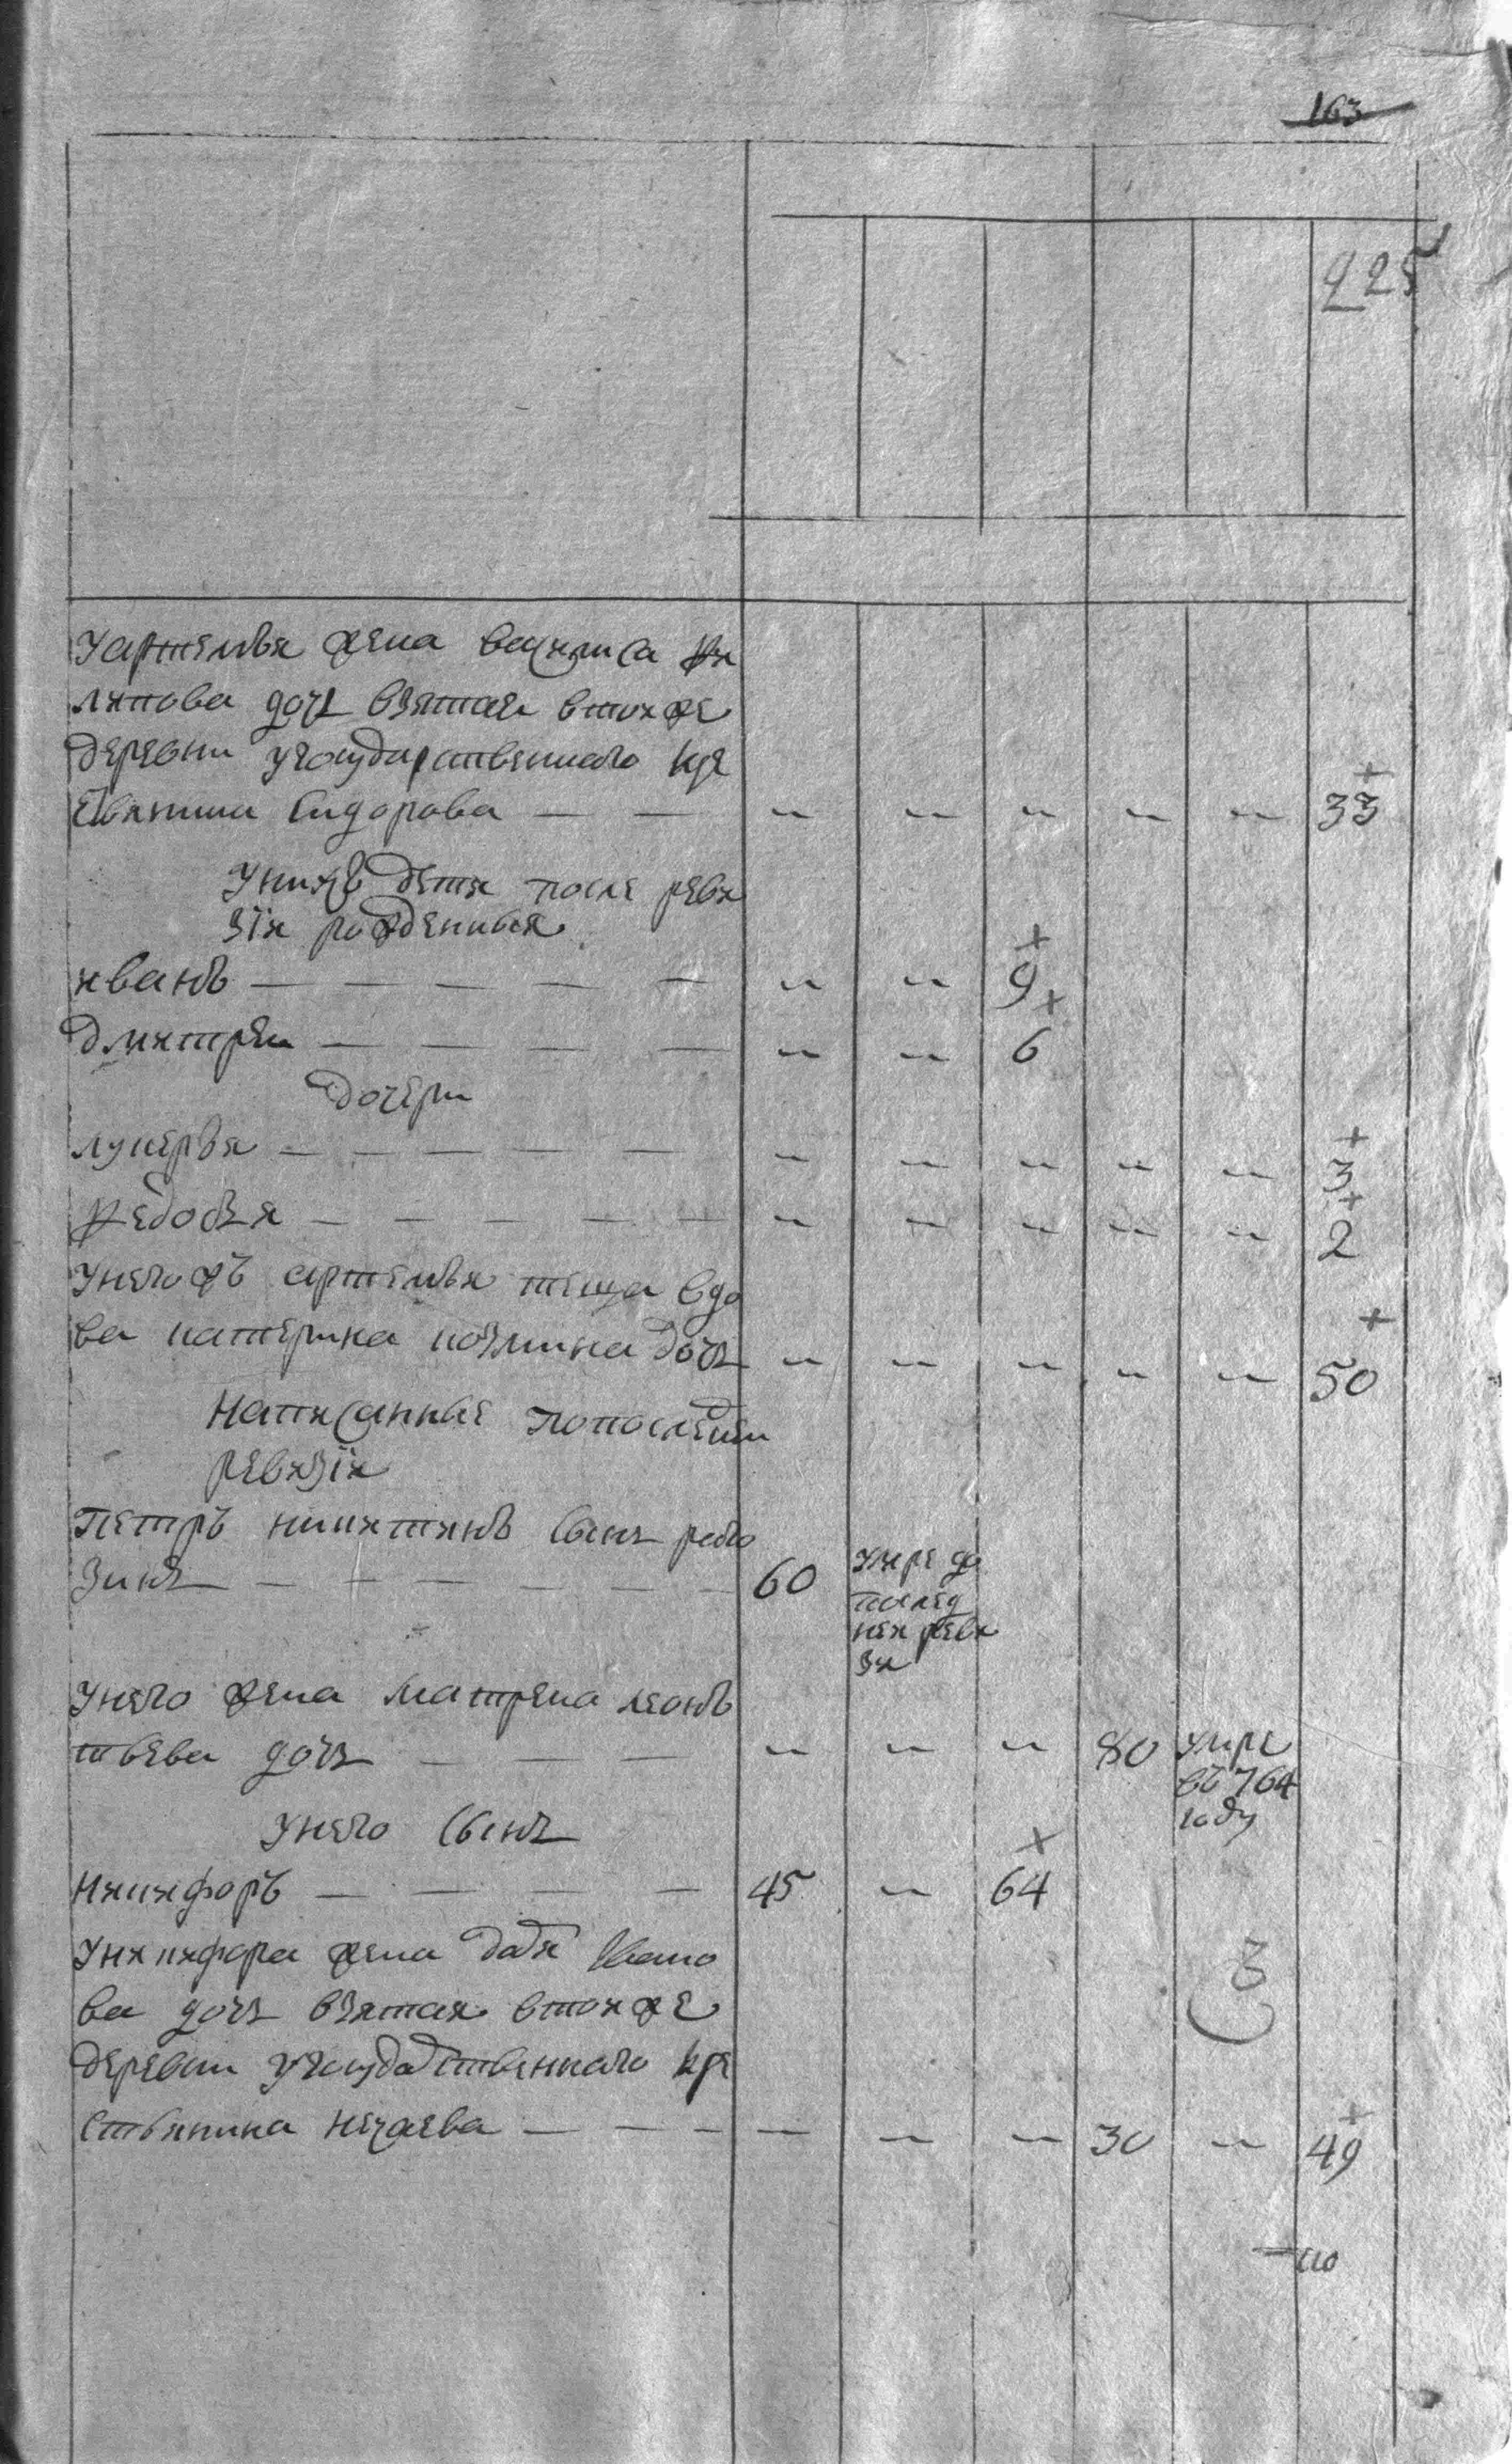 163
225
уартемья жена васхлиса фи
липова дочь взятая втои же
деревни угосударственного кре
стьянина Сидорова — — -- -- -- -- -- 33
уних дети после реви
зіи рожденныя
иванъ — — — — — -- -- 9
дмитреи — — — — -- -- 6
дочери
лукерья — — — — — -- -- -- -- -- 3
федосья — — — — — -- -- -- -- -- 2
унегожъ артемья теща вдо
ва катерина козмина дочь -- -- -- -- -- 50
написанные попоследнеи
ревизіи
Петръ никитинъ сынъ рого
зинъ — — — — — — 60 умре до
послед
неи реви
зи
унего жена матрена леонъ
тьева дочь — — — -- -- -- 80 умре
въ 764
году
унего сынъ
никифоръ — — — — 45 -- 64
уникифора жена дарья Ивано
ва дочь взятая втои же
деревни угосударственнаго кре
стьянина нечаева — — — -- -- -- 30 -- 49
3